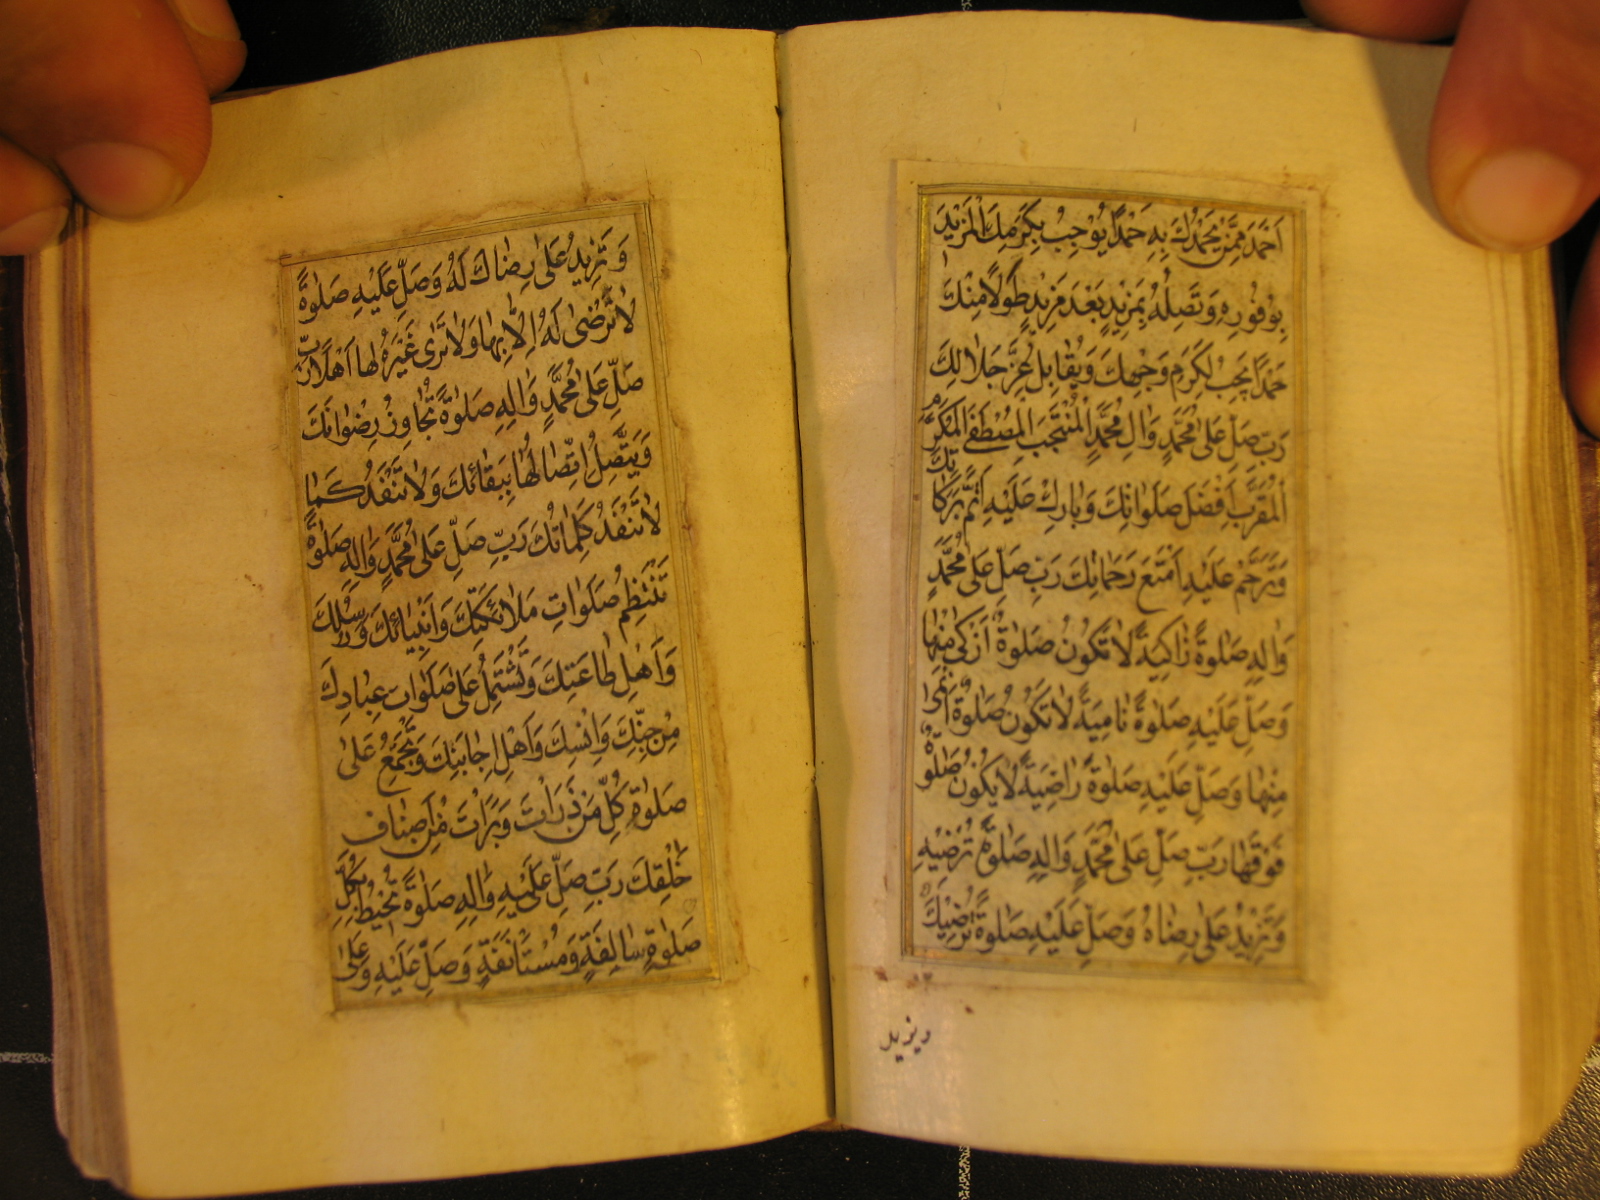 اَحْمَدَ مِمَّنْ يَحْمَدُكَ بِهِ حَمْدًا يُوْجِبُ بِكَرَمِكَ الْمَزِيْدَ
بِوُفُورِهِ وَتَصِلُهُ بِمَزِيْدٍ بَعْدَ مَزِيْدٍ طَوْلًا مِنْكَ
حَمْدًا يَجِبُ لِكَرَمِ وَجْهِكَ وَيُقَابِلُ عِزَّ جَلَالِكَ
رَبِّ صَلِّ عَلٰى مُحَمَّدٍ وَاٰلِ مُحَمَّدٍ الْمُنْتَجَبِ الْمُصْطَفَى الْمُكَرَّمِ
الْمُقَرَّبِ اَفْضَلَ صَلَوَاتِكَ وَبَارِكْ عَلَيْهِ اَتَمَّ بَرَكَاتِكَ
وَتَرَحَّمْ عَلَيْهِ اَمْتَعَ رَحَمَاتِكَ رَبِّ صَلِّ عَلٰى مُحَمَّدٍ
وَاٰلِهِ صَلٰوةً زَاكِيَةً لَا تَكُونُ صَلٰوةٌ اَزْكٰى مِنْهَا
وَصَلِّ عَلَيْهِ صَلٰوةً نَامِيَةً لَا تَكُونُ صَلٰوةٌ اَنْمٰى
مِنْهَا وَصَلِّ عَلَيْهِ صَلٰوةً رَاضِيَةً لَا يَكُونُ صَلٰوةٌ
فَوْقَهَا رَبِّ صَلِّ عَلٰى مُحَمَّدٍ وَاٰلِهِ صَلٰوةً تُرْضِيْهِ
وَتَزِيْدُ عَلٰى رِضَاهُ وَصَلِّ عَلَيْهِ صَلٰوةً تُرْضِيْكَ
ويزيد
وَتَزِيْدُ عَلٰى رِضَاكَ لَهُ وَصَلِّ عَلَيْهِ صَلٰوةً
لَا تَرْضٰى لَهُ اِلَّا بِهَا وَلَا تَرٰى غَيْرَهُ لَهَا اَهْلًا رَبِّ
صَلِّ عَلٰى مُحَمَّدٍ وَاٰلِهِ صَلٰوةً تُجَاوِزُ رِضْوَانَكَ
وَيَتَّصِلُ اتِّصَالُهَا بِبَقَائِكَ وَلَا تَنْفَدُ كَمَا
لَا تَنْفَدُ كَلِمَاتُكَ رَبِّ صَلِّ عَلٰى مُحَمَّدٍ وَاٰلِهِ صَلٰوةً
تَنْتَظِمُ صَلَوَاتِ مَلَائِكَتِكَ وَاَنْبِيَائِكَ وَرُسُلِكَ
وَاَهْلِ طَاعَتِكَ وَتَشْتَمِلُ عَلٰى صَلَوَاتِ عِبَادِكَ
مِنْ جِنِّكَ وَاِنْسِكَ وَاَهْلِ اِجَابَتِكَ وَتَجْتَمِعُ عَلٰى
صَلٰوةِ كُلِّ مَنْ ذَرَاْتَ وَبَرَاْتَ مِنْ اَصْنَافِ
خَلْقِكَ رَبِّ صَلِّ عَلَيْهِ وَاٰلِهِ صَلٰوةً تُحِيْطُ بِكُلِّ
صَلٰوةٍ سَالِفَةٍ وَمُسْتَأْنَفَةٍ وَصَلِّ عَلَيْهِ وَعَلٰى